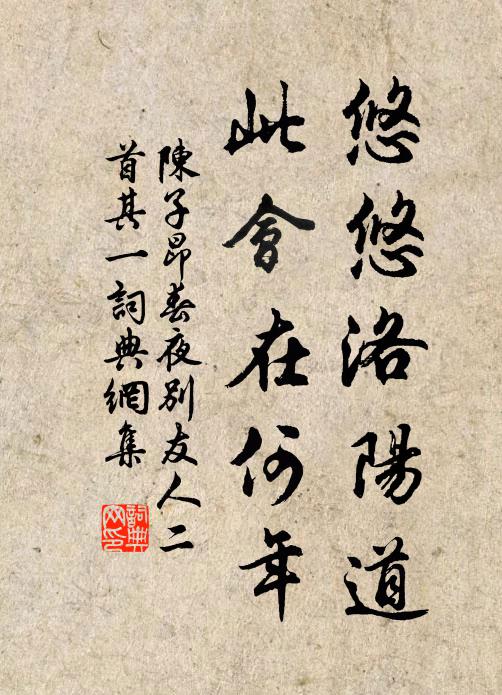 悠悠洛陽道
此會在何年
陳子昂春夜別友人二
首其一詞典網集
詞典
网印